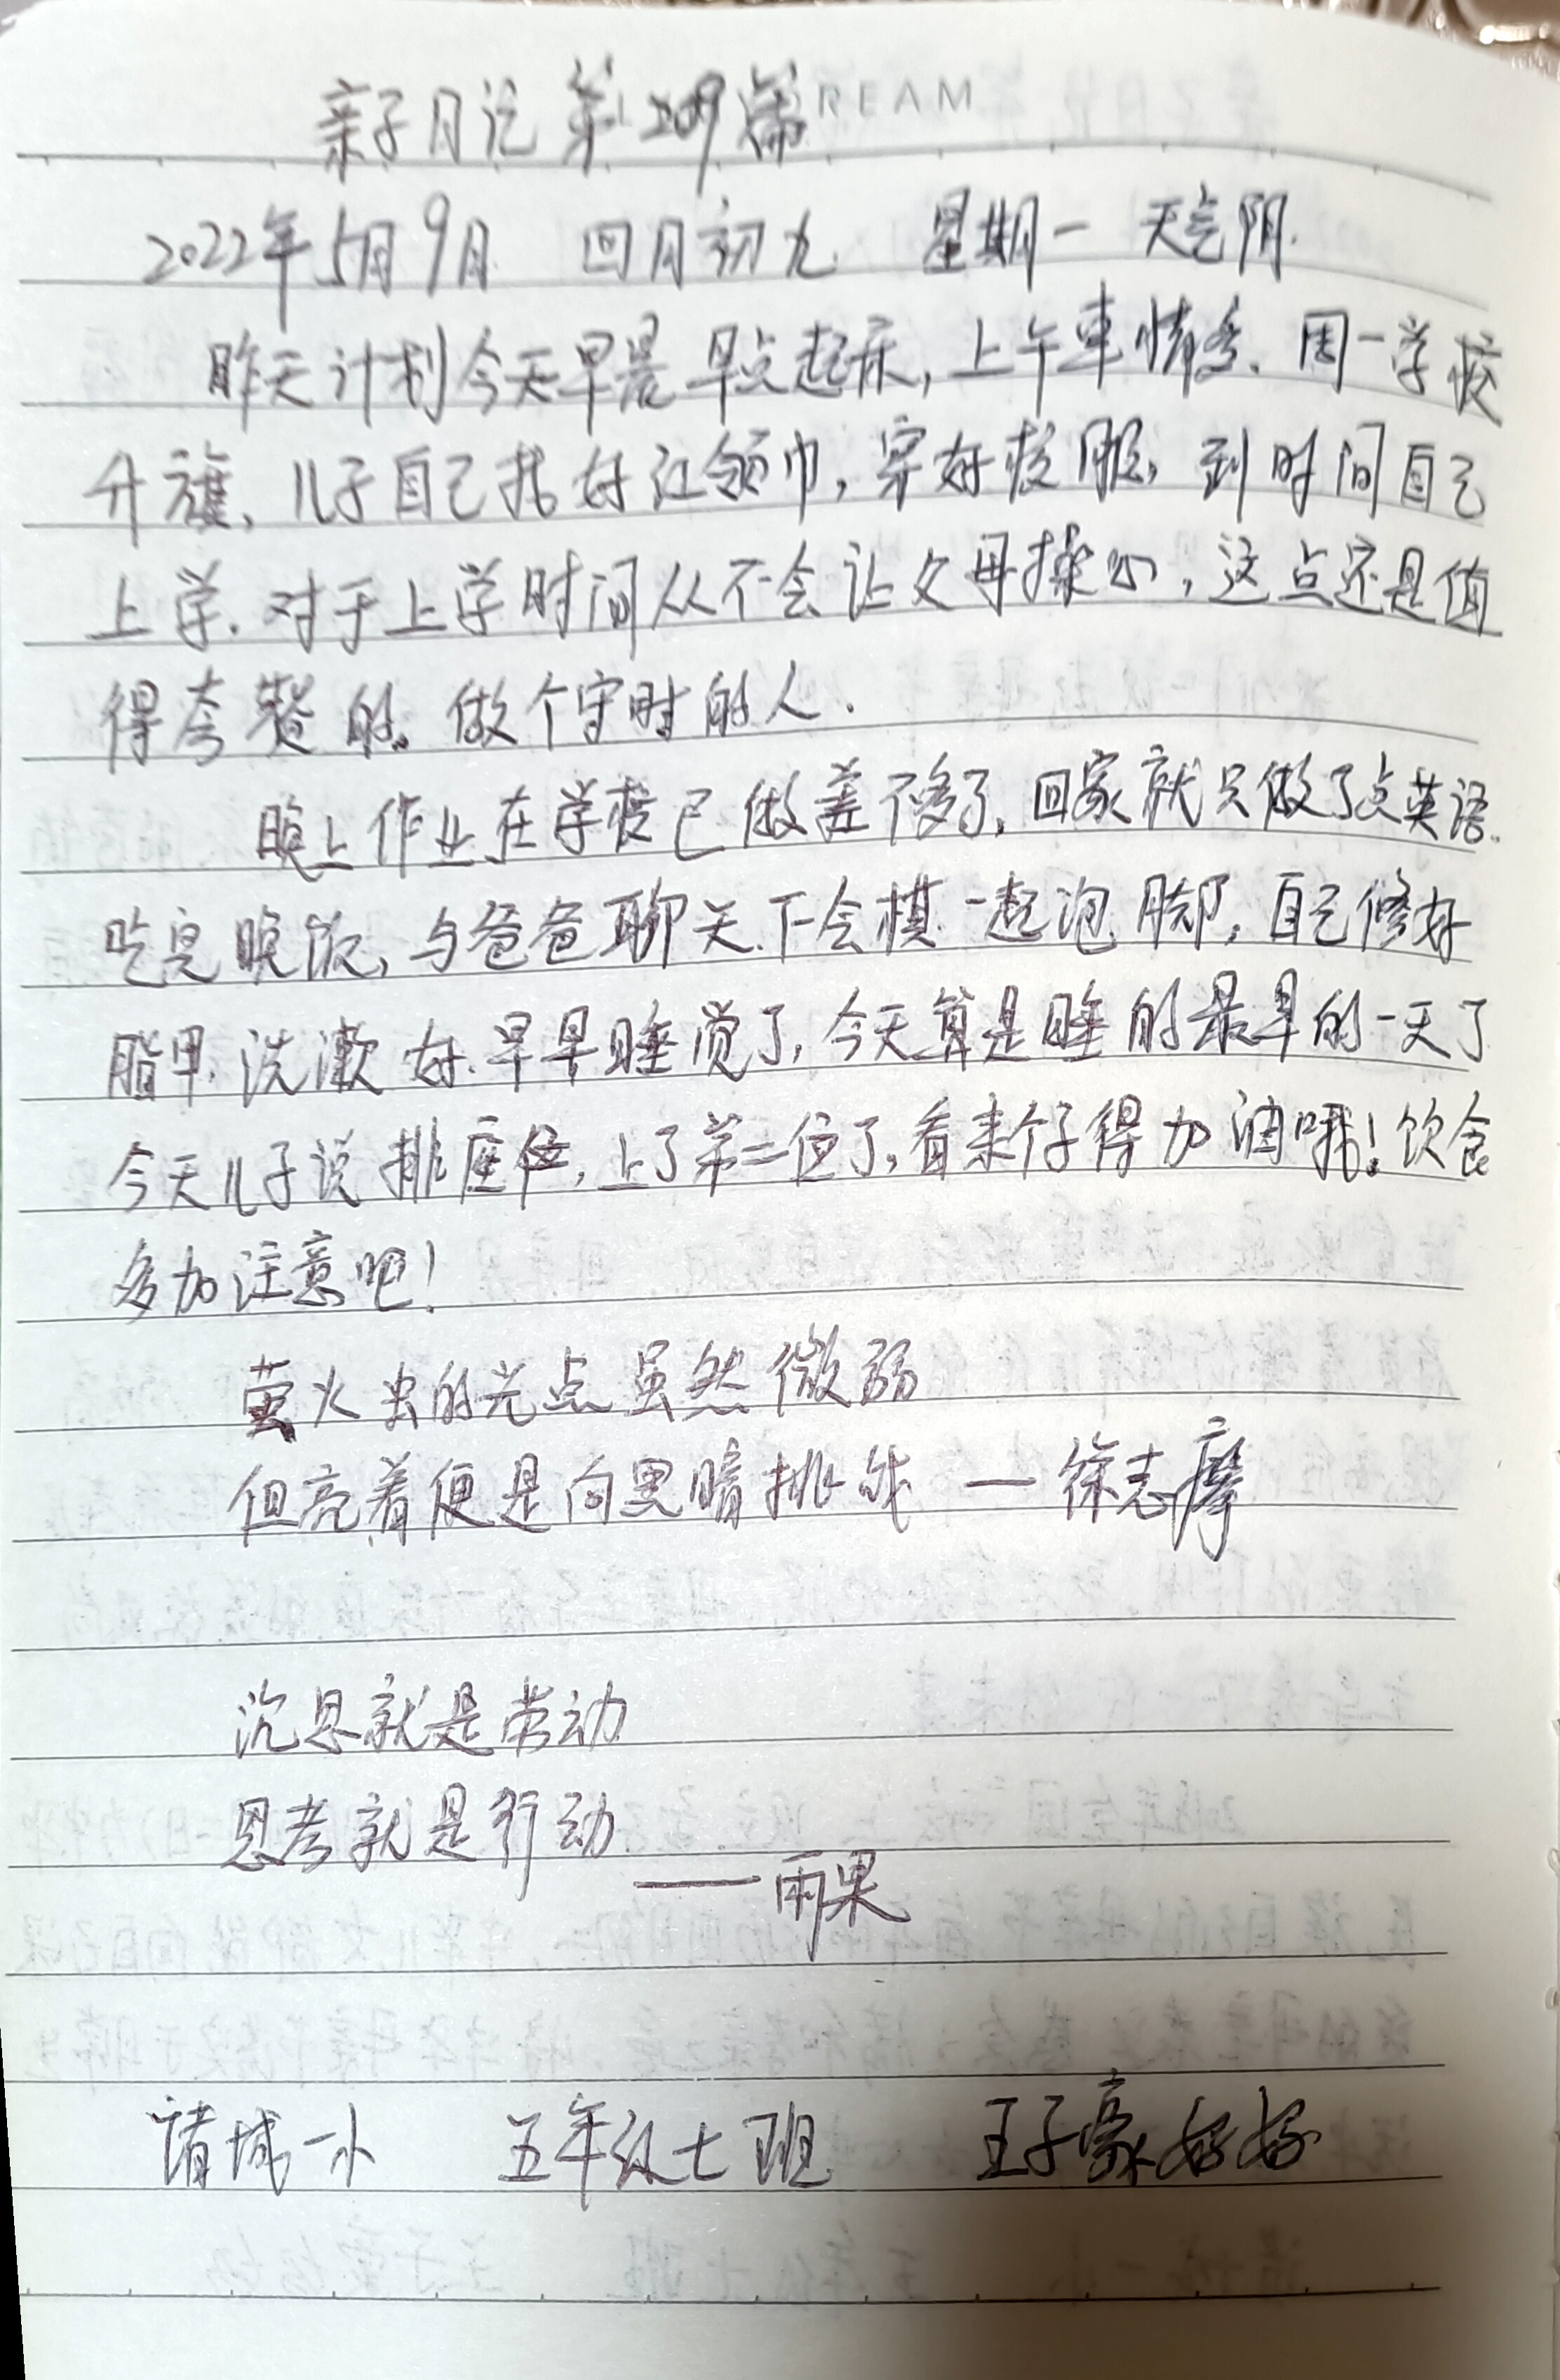 亲子日记 第209篇 REAM
2022年5月9日 四月初九 星期一 天气阴.
昨天计划今天早晨早点起床，上午事情多、周一学校
升旗、儿子自己扎好红领巾，穿好校服，到时间自己
上学．对于上学时间从不会让父母操心，这点还是值
得夸赞的。做个守时的人．
晚上作业在学校已做差不多了，回家就只做了点英语．
吃完晚饭，与爸爸聊天．下会棋．一起泡脚，自己修好
脂甲．洗漱好．早早睡觉了，今天算是睡的最早的一天了
今天儿子说排座位，上了第二位了，看来个子得加油哦！饮食
多加注意吧！
萤火虫的光点虽然微弱
但亮着便是向黑暗挑战 — 徐志摩
沉思就是劳动
思考就是行动
——雨果
诸城一小 五年级七班 王子豪妈妈